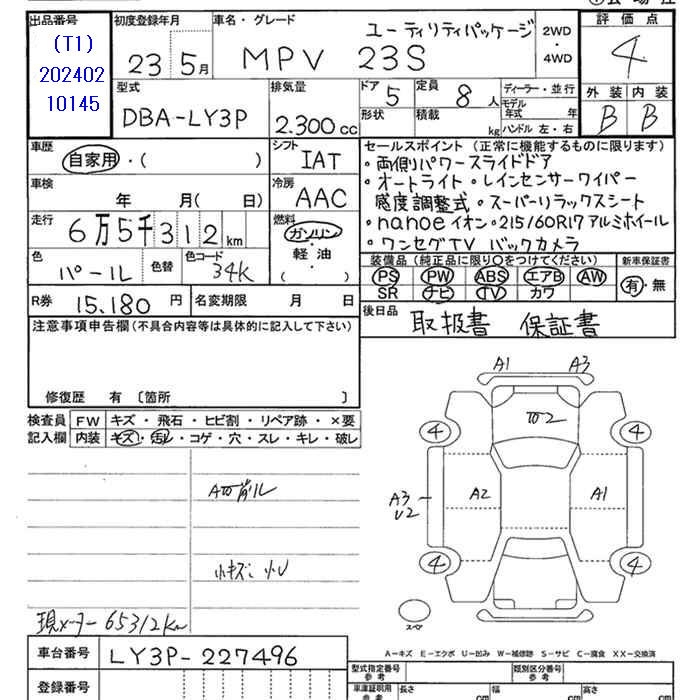 出品番号
(T1)
202402
10145
初度登録年月
23 5月
車名・グレード
ユーティリティパッケージ
MPV 23S
2WD
・
4WD
評価点
4
外装 内装
B B
型式
DBA-LY3P
排気量
2.300cc
ドア
5
定員
8人
ディーラー・並行
形状
積載
kg
モデル年式 年
ハンドル 左・右
車歴
自家用・( )
シフト
IAT
車検
年 月( 日)
冷房
AAC
走行
6万5千312km
燃料
ガソリン
・
軽油
( )
色
パール
色替
色コード
34K
R券
15.180円
名変期限 月 日
セールスポイント(正常に機能するものに限ります)
・両側パワースライドドア
・オートライト・レインセンサーワイパー
感度調整式・スーパーリラックスシート
・nanoeイオン・215/60R17アルミホイール
・ワンセグTV バックカメラ
装備品(純正品に限り○をつけてください)
新車保証書
PS PW ABS エアB AW
SR ナビ TV カワ
有・無
後日品
取扱書 保証書
注意事項申告欄(不具合内容等は具体的に記入して下さい)
修復歴 有 〔箇所 〕
検査員
記入欄
FW キズ・飛石・ヒビ割・リペア跡・×要
内装 キズ・汚レ・コゲ・穴・スレ・キレ・破レ
現メーター65312km
A1 A3
4 4
A3
U2
A2 A1
4 4
スペア
A－キズ E－エクボ U－凹み W－補修跡 S－サビ C－腐食 XX－交換済
車台番号
LY3P-227496
登録番号
型式指定番号
参考
類別区分番号
参考
車庫証明用
参考
長さ cm
幅 cm
高さ cm